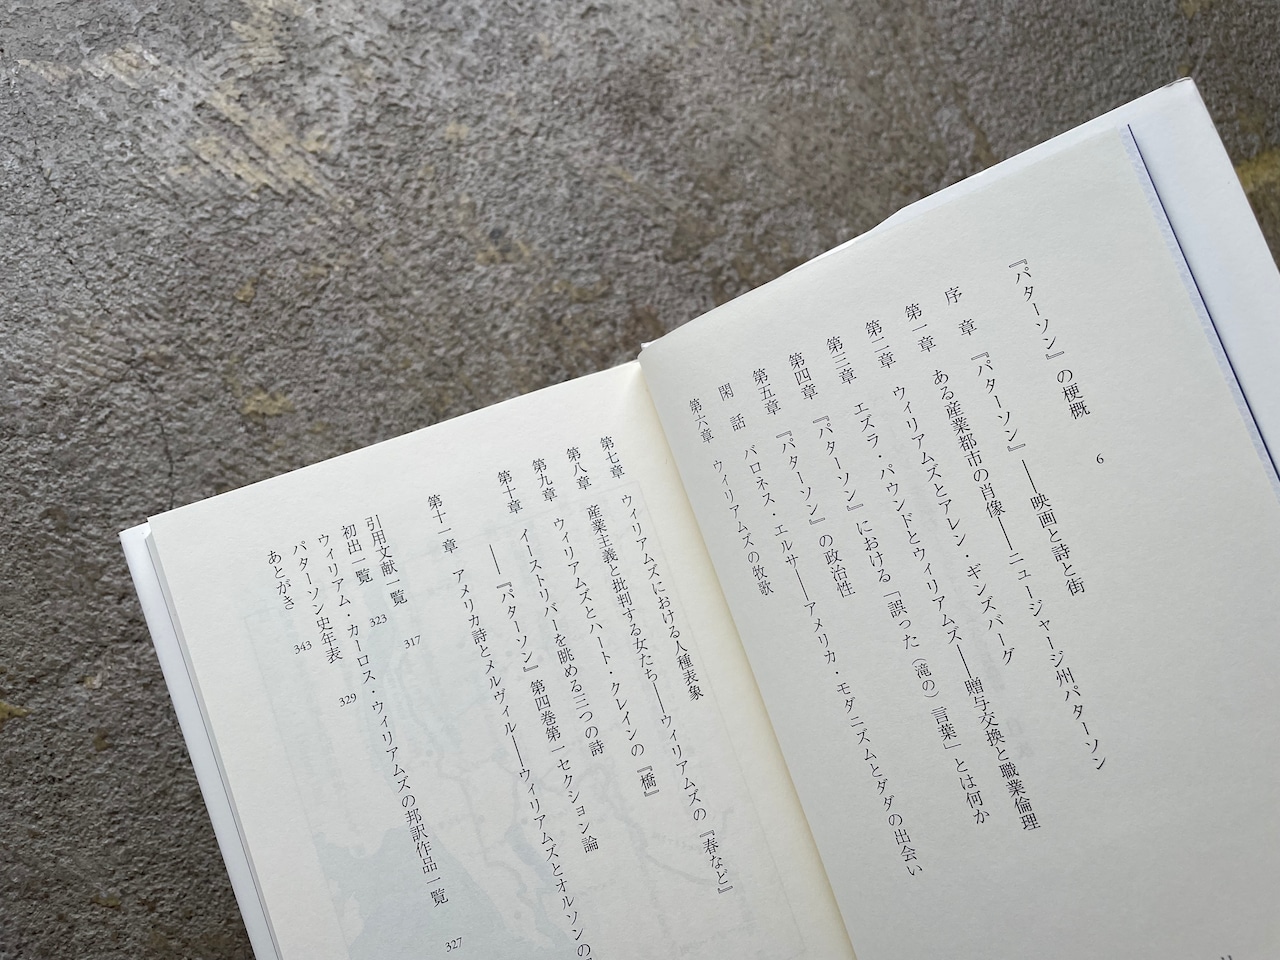 『パターソン』の梗概 6
序　章　『パターソン』――映画と詩と街
第一章　ある産業都市の肖像――ニュージャージ州パターソン
第二章　ウィリアムズとアレン・ギンズバーグ
第三章　エズラ・パウンドとウィリアムズ――贈与交換と職業倫理
第四章　『パターソン』における「誤った（滝の）言葉」とは何か
第五章　『パターソン』の政治性
閑　話　バロネス・エルサ――アメリカ・モダニズムとダダの出会い
第六章　ウィリアムズの牧歌
第七章　ウィリアムズにおける人種表象
第八章　産業主義と批判する女たち――ウィリアムズの『春など』
第九章　ウィリアムズとハート・クレインの『橋』
第十章　イーストリバーを眺める三つの詩
――『パターソン』第四巻第一セクション論
第十一章　アメリカ詩とメルヴィル――ウィリアムズとオルソンの
引用文献一覧 317
初出一覧 323
ウィリアム・カーロス・ウィリアムズの邦訳作品一覧 327
パターソン史年表 329
あとがき 343